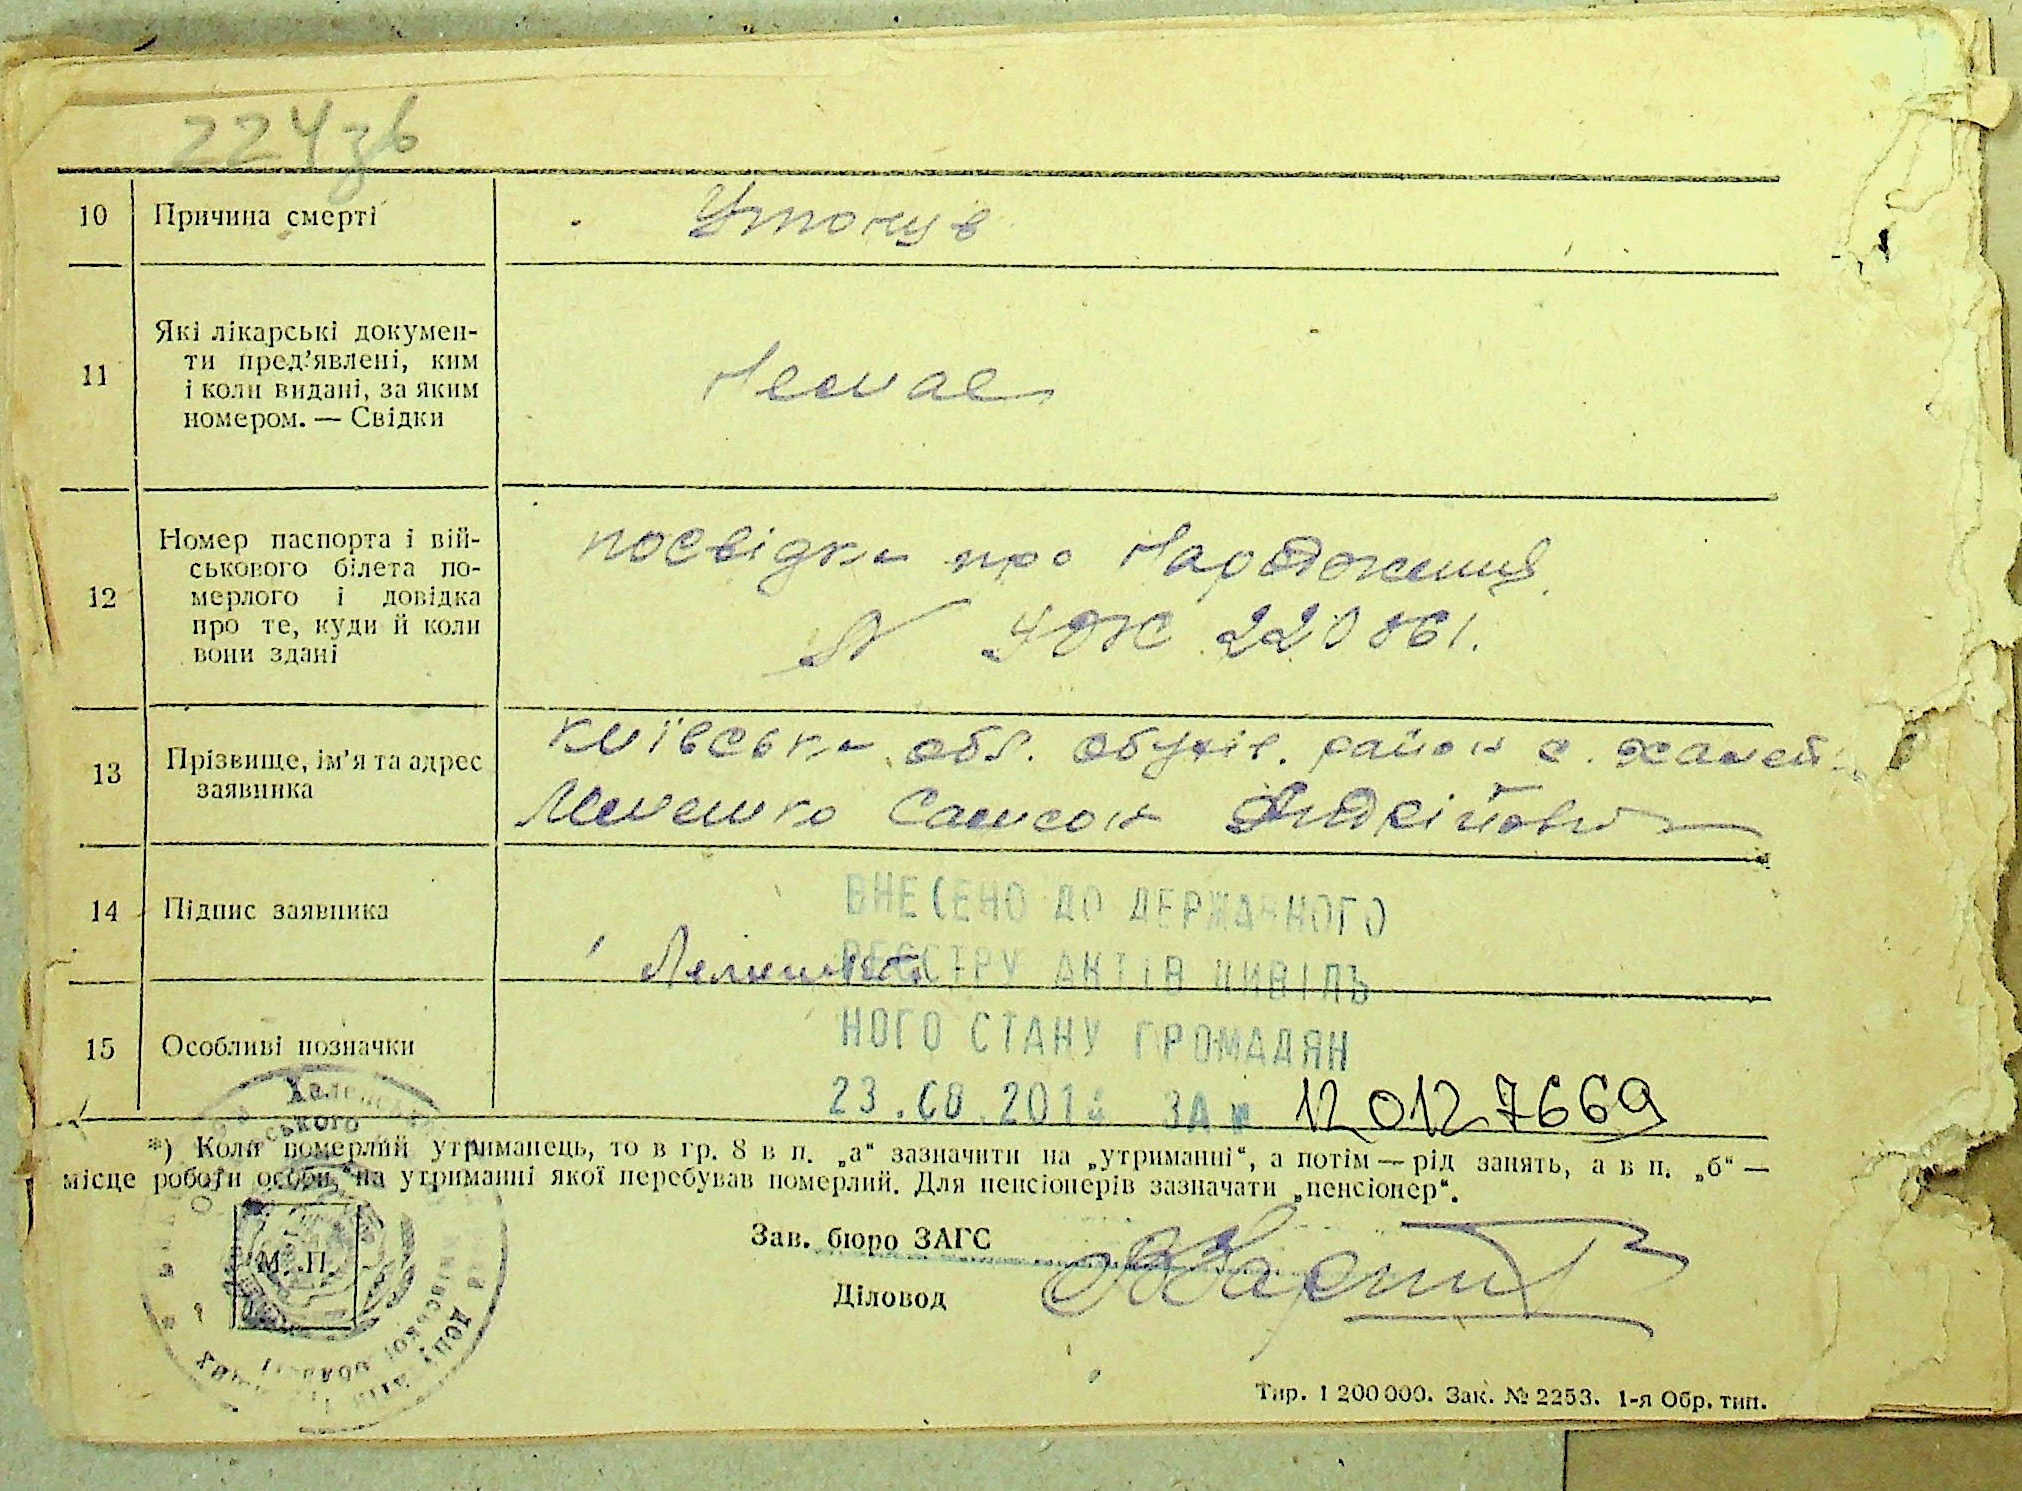 224зв
10 Причина смерті Утонув
11 Які лікарські докумен-
ти пред'явлені, ким
і коли видані, за яким
номером. — Свідки
Немає
12 Номер паспорта і вій-
ськового білета по-
мерлого і довідка
про те, куди й коли
вони здані
посвідка про народження
N УЮЖ 220861.
13 Прізвище, ім'я та адрес
заявника
київська обл. обухів. район с.
Самсон Андрійович
14 Підпис заявника
15 Особливі позначки
ВНЕСЕНО ДО ДЕРЖАВНОГО
РЕЄСТРУ АКТІВ ЦИВІЛЬ
НОГО СТАНУ ГРОМАДЯН
ЗА № 12 012 7669
*) Коли померлий утриманець, то в гр. 8 в п. „а“ зазначити на „утриманні“, а потім — рід занять, а в п. „б“ —
місце роботи особи, на утриманні якої перебував померлий. Для пенсіонерів зазначати „пенсіонер“.
М. П.
Зав. бюро ЗАГС
Діловод
Тир. 1 200 000. Зак. № 2253. 1-я Обр. тип.